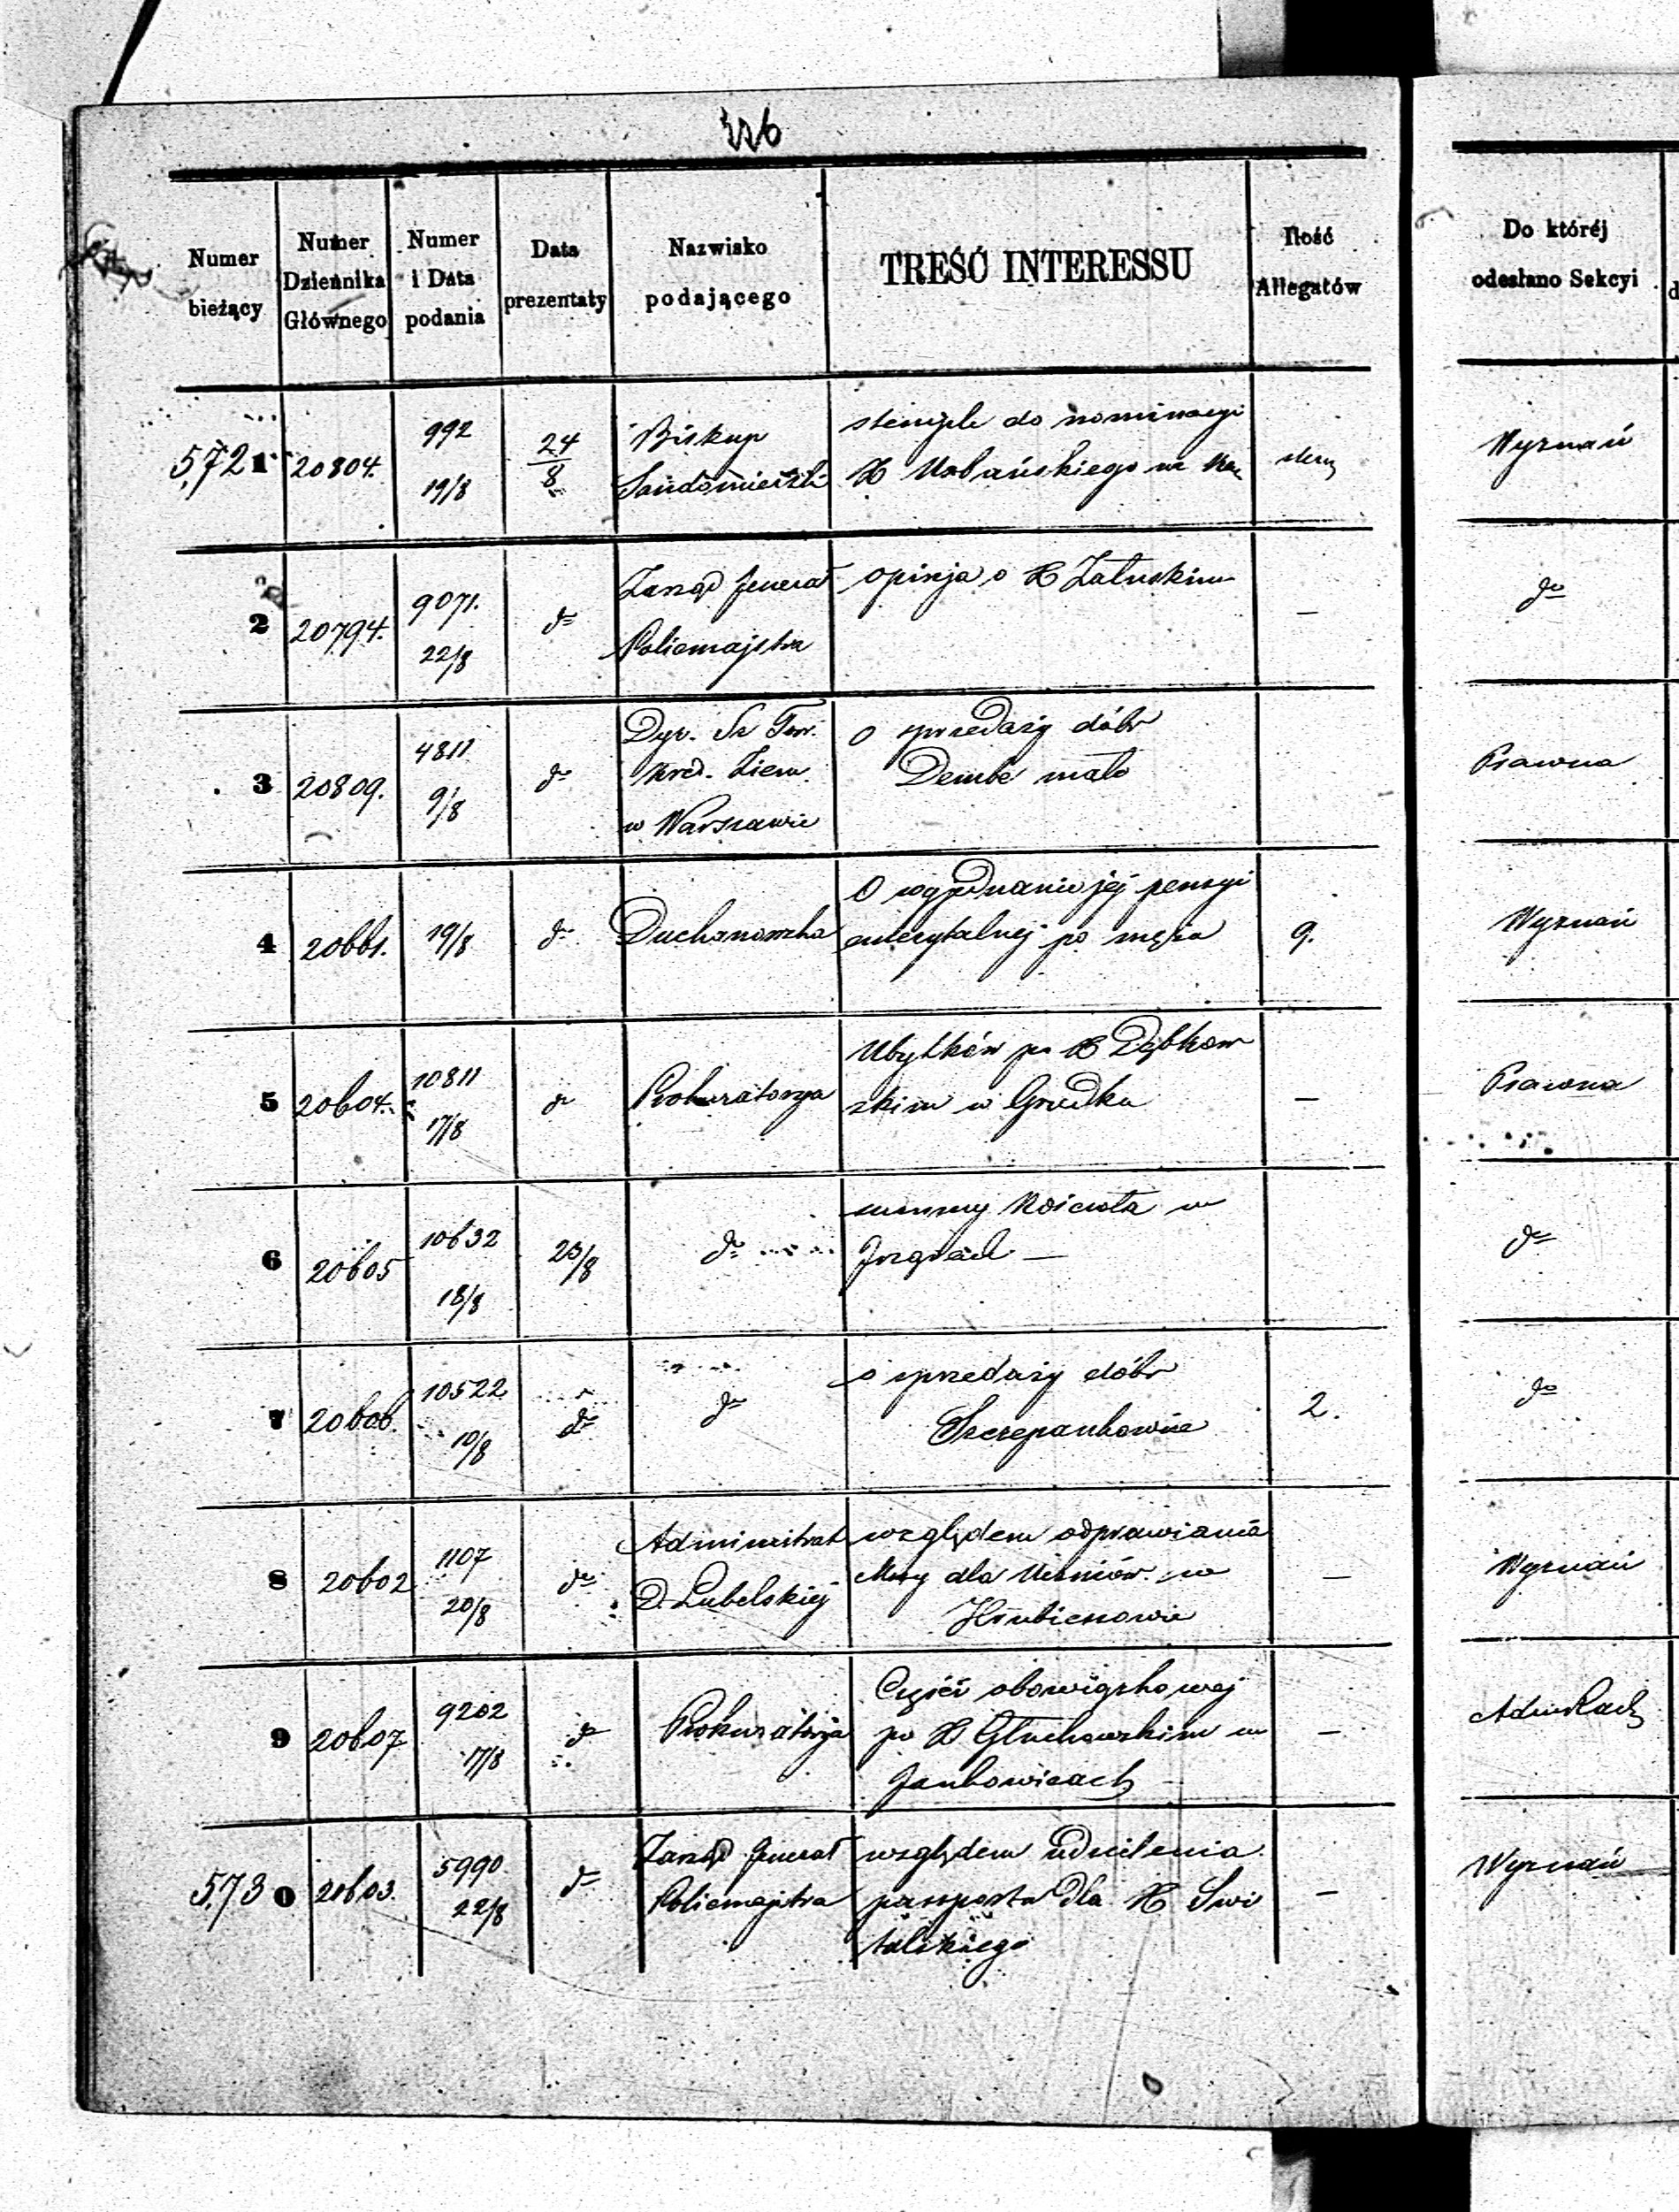 226
Numer bieżący
Numer Dziennika Głównego
Numer i Data podania
Data prezentaty
Nazwisko podającego
TREŚĆ INTERESSU
Ilość Allegatów
Do któréj odesłano Sekcyi
5,721 20804. 992 19/8 24/8 Biskup Sandomierski
stemple do nominacyi
X Urbańskiego na
Wyznań
2 20794. 9071. 22/8 do Zarząd Jenerał Policmajstra
opinja o X Załuskim
—
do
3 20809. 4811 9/8 do Dyr. Sz Tow. Kred. Ziem. w Warszawie
O sprzedaży dóbr
Dembe małe
Prawna
4 20661. 19/8 do Duchanowska
O wyjednanie jej pensyi
emerytalnej po mężu
9.
Wyznań
5 20604. 10811 17/8 do Prokuratorya
Ubytków po X Dębkow
skim w Grudku
—
Prawna
6 20605 10632 18/8 23/8 do
summy Kościoła w
do
7 20606. 10522 10/8 do do
o sprzedaży dóbr
Szczepankowice
2.
do
8 20602 1107 20/8 do Administrat D. Lubelskiej
względem odprawiania
Mszy dla Uczniów w
Hrubieszowie
—
Wyznań
9 20607 9202 17/8 do Prokuratorja
Części obowiązkowej
po X Głuchowskim w
Jankowicach
—
5,730 20603. 5990 22/8 do Zarząd Jenerał Policmajstra
względem udzielenia
passportu dla X Swi
talskiego
—
Wyznań